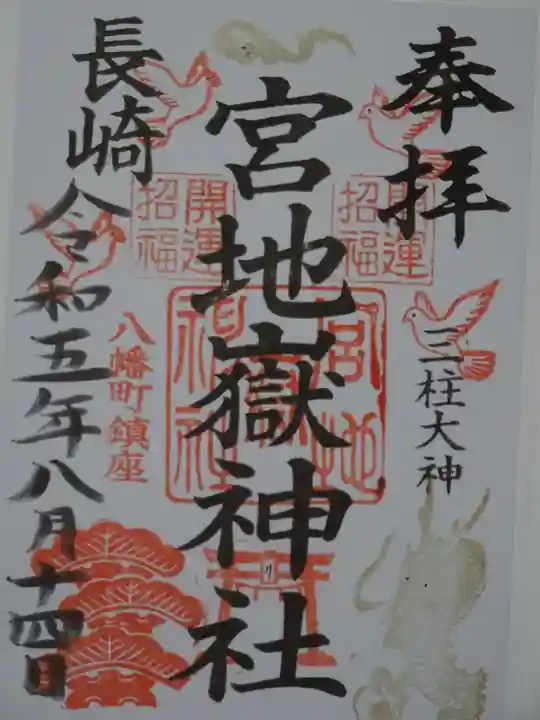 奉拝
三柱大神
開運
招福
宮地嶽神社
宮地
神社
開運
招福
八幡町鎮座
長崎
令和五年八月十四日